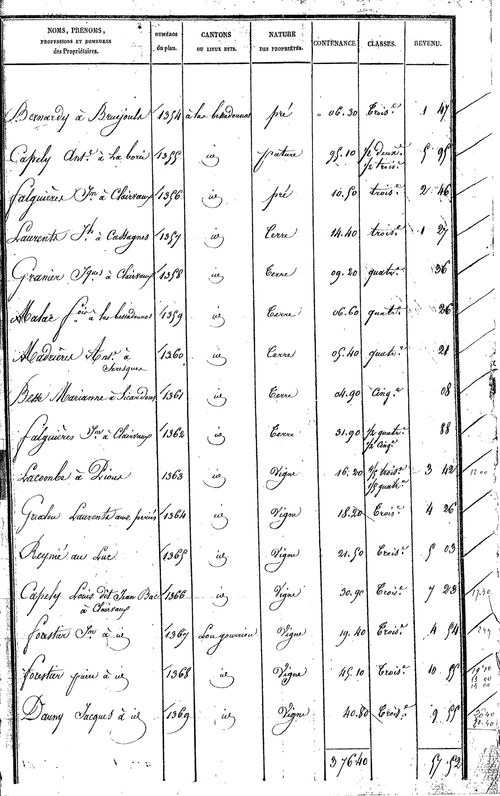 NOMS, PRENOMS, PROFESSIONS ET DEMEURES des Propriétaires. NUMÉROS du plan. CANTONS OU LIEUX DITS. NATURE DES PROPRIÉTÉS. CONTENANCE. CLASSES. REVENU.
Bernardy à Bruéjouls 1354 à las bessadounes pré " 06.30 Trois.e 1 47
Capely Ant.e à La borie 1355 id pature 95.10 ½ deux.e ½ trois.e 5 95
falguières J.n à Clairvaux 1356 id pré 10.50 trois.e 2 46
Laurents J.h à Cassagnes 1357 id Terre 14.40 trois.e 1 27
Granier J.ques à Clairvaux 1358 id Terre 09.20 quatr.e 36
Malac f.cois à las bessadounes 1359 id Terre 06.60 quatr.e 26
Madrières Ant.e à 1360 id Terre 05.40 quatr.e 21
Bess Marianne à 1361 id Terre 04.90 Cinq.e 08
falguières J.n à Clairvaux 1362 id Terre 31.90 ½ quatr.e ½ cinq.e 88
Lacombe à 1363 id Vigne 16.20 trois.e quatr.e 3 42
Laurents 1364 id Vigne 18.20 Trois.e 4 26
Reynié au Luc 1365 id Vigne 21.50 Trois.e 5 03
Capely Louis dit Jean Bac 1366 id Vigne 30.90 Trois.e 7 23 17.30
à Clairvaux
forestier J.n à id 1367 Lou gourrieu Vigne 19.40 Trois.e 4 54
forestier père à id 1368 id Vigne 45.10 Trois.e 10 55
Dauny Jacques à id 1369 id Vigne 40.80 Trois.e 9 55
3 76 40 57 52